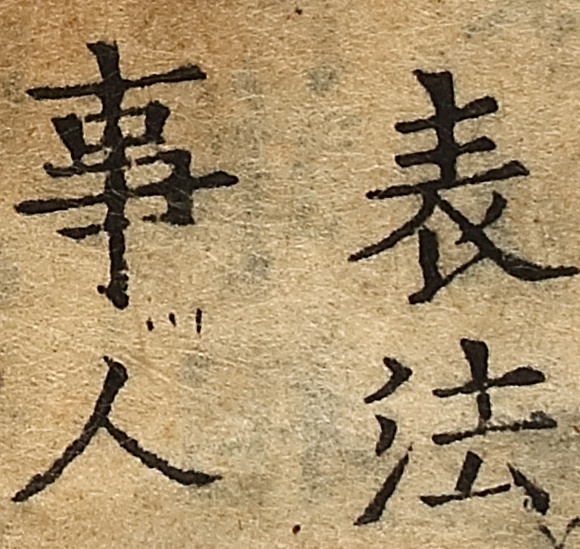 表法
事人